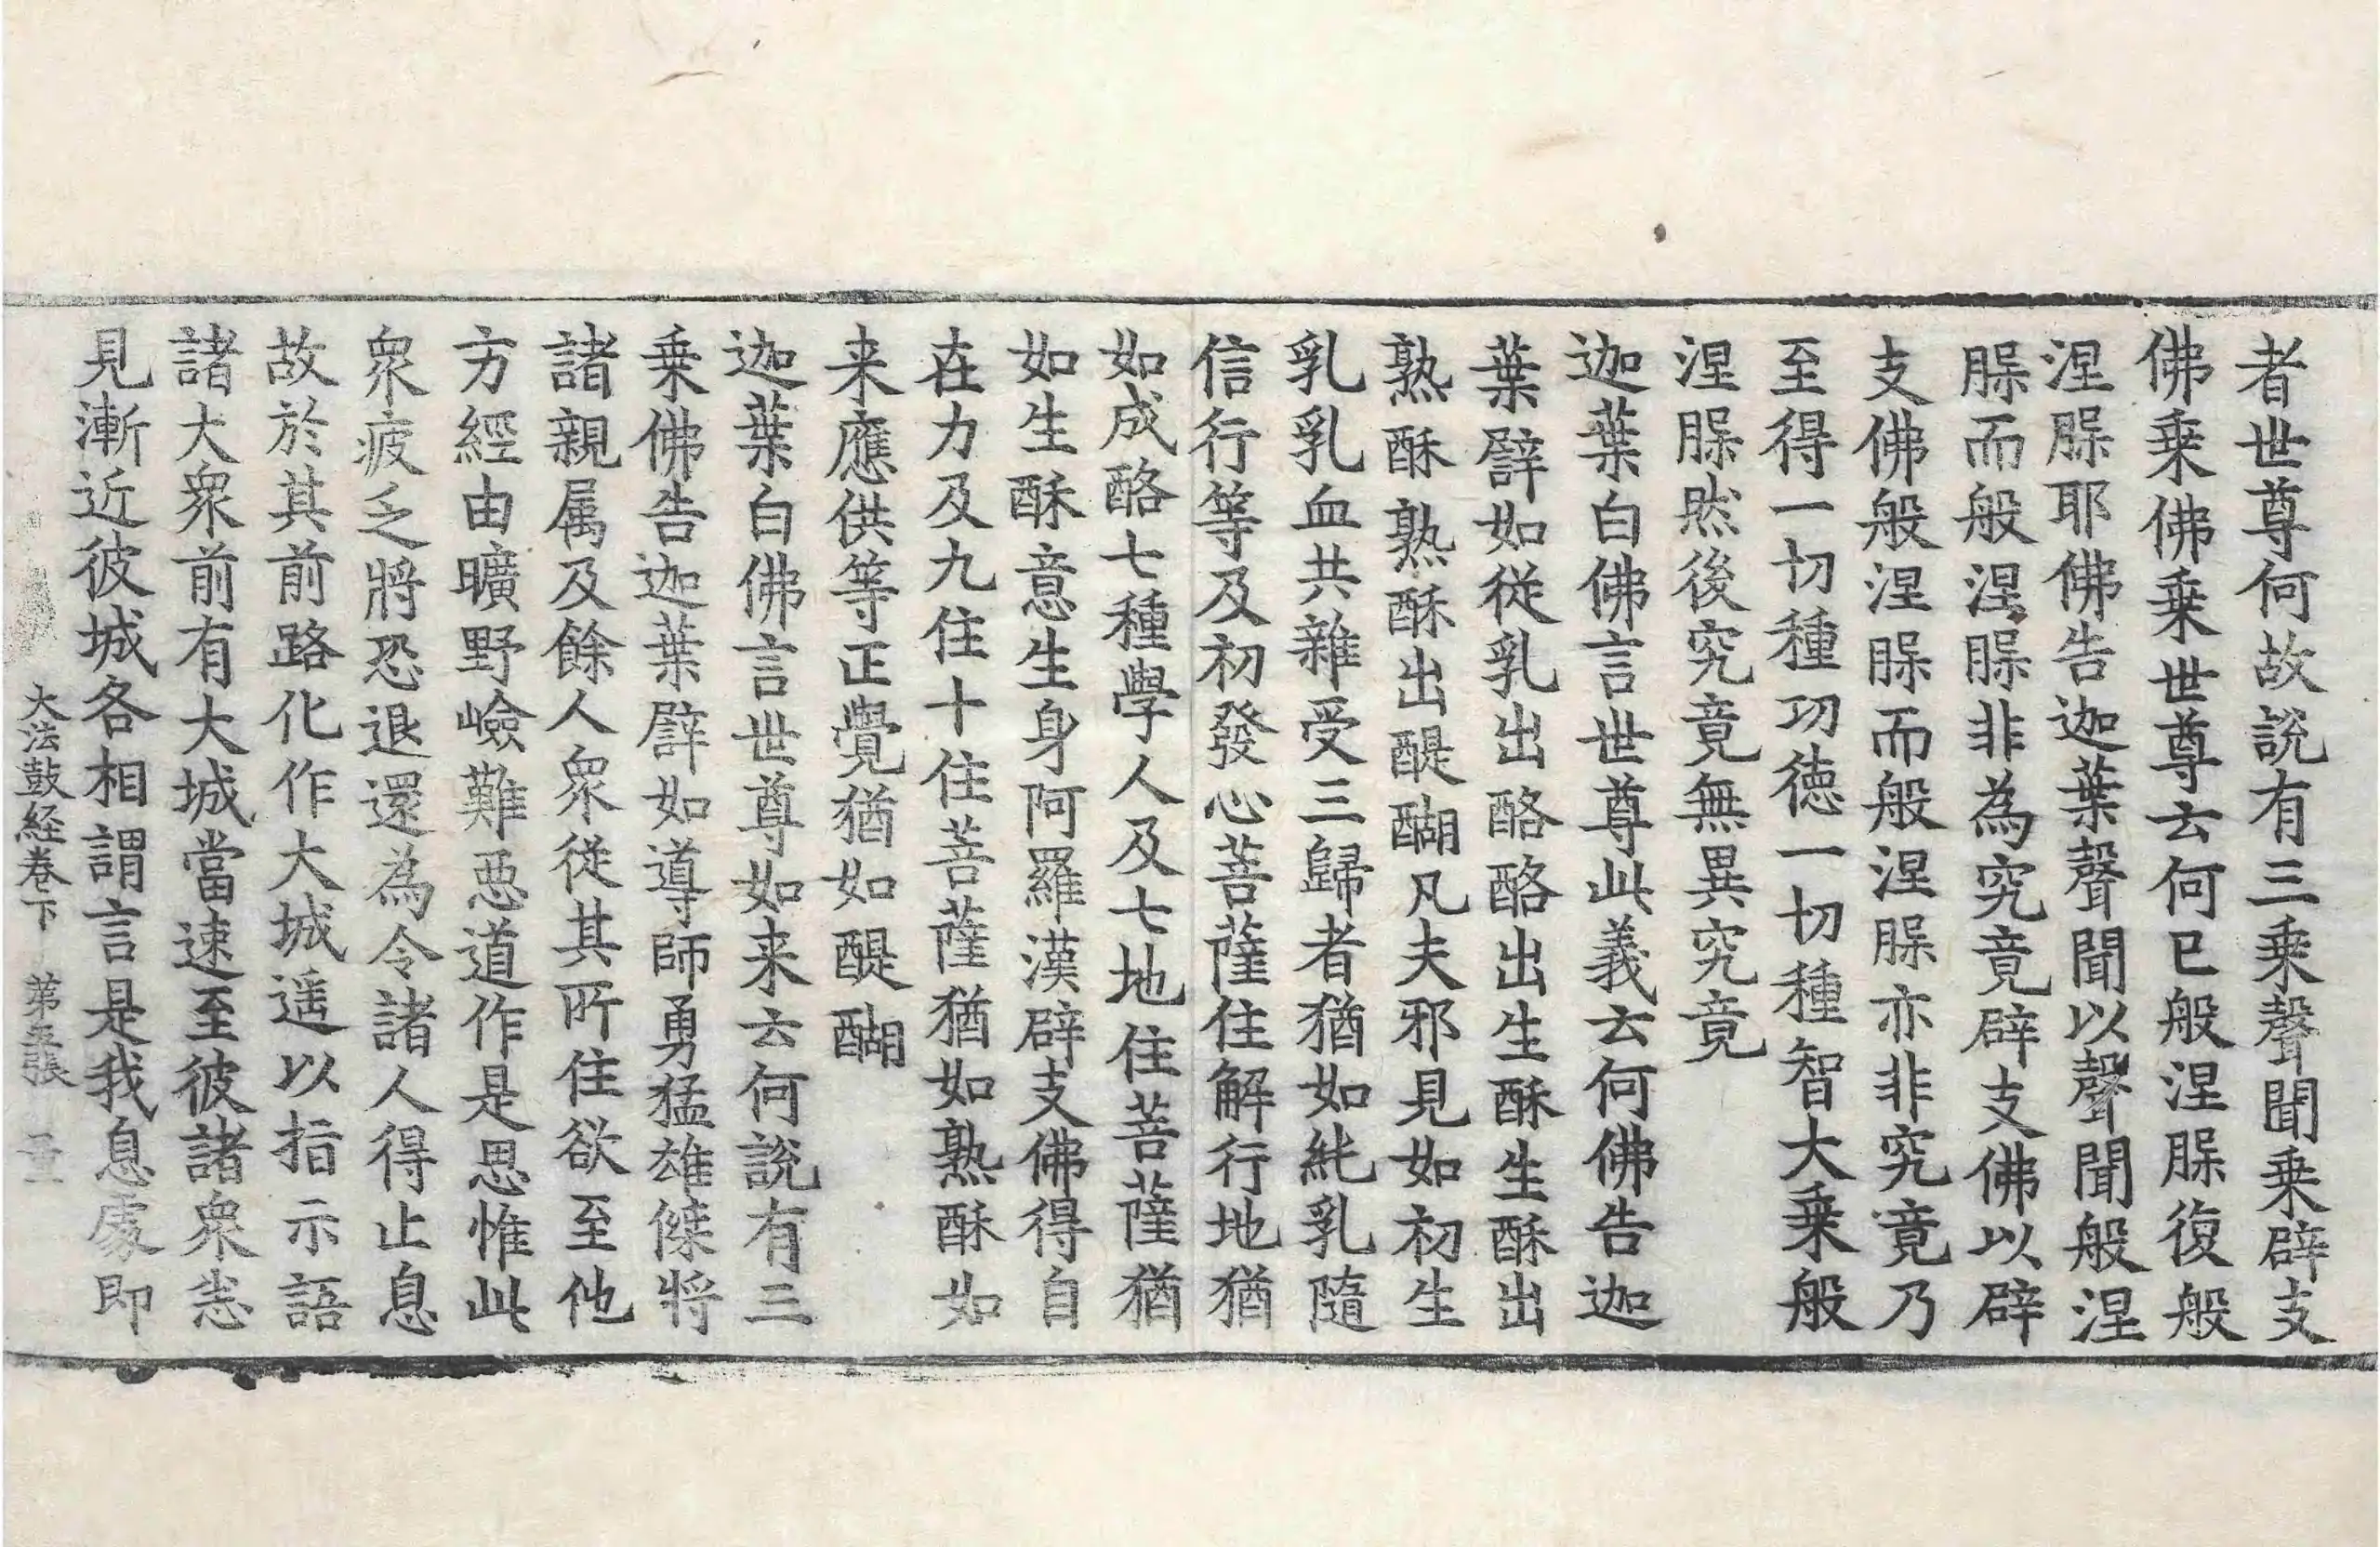 者世尊何故說有三乗聲聞乗辟支
佛乗佛乗世尊云何已般涅槃復般
涅槃耶佛告迦葉聲聞以聲聞般涅
槃而般涅槃非為究竟辟支佛以辟
支佛般涅槃而般涅槃亦非究竟乃
至得一切種功徳一切種智大乗般
涅槃然後究竟無異究竟
迦葉白佛言世尊此義云何佛告迦
葉譬如從乳出酪酪出生酥生酥出
熟酥熟酥出醍醐凡夫邪見如初生
乳乳血共雜受三歸者猶如純乳隨
信行等及初發心菩薩住解行地猶
如成酪七種學人及七地住菩薩猶
如生酥意生身阿羅漢辟支佛得自
在力及九住十住菩薩猶如熟酥如
来應供等正覺猶如醍醐
迦葉白佛言世尊如来云何說有三
乗佛告迦葉譬如導師勇猛雄傑將
諸親属及餘人衆從其所住欲至他
方經由曠野嶮難惡道作是思惟此
衆疲乏將恐退還為令諸人得止息
故於其前路化作大城遥以指示語
諸大衆前有大城當速至彼諸衆悉
見漸近彼城各相謂言是我息處即
大法鼓経卷下 第五張